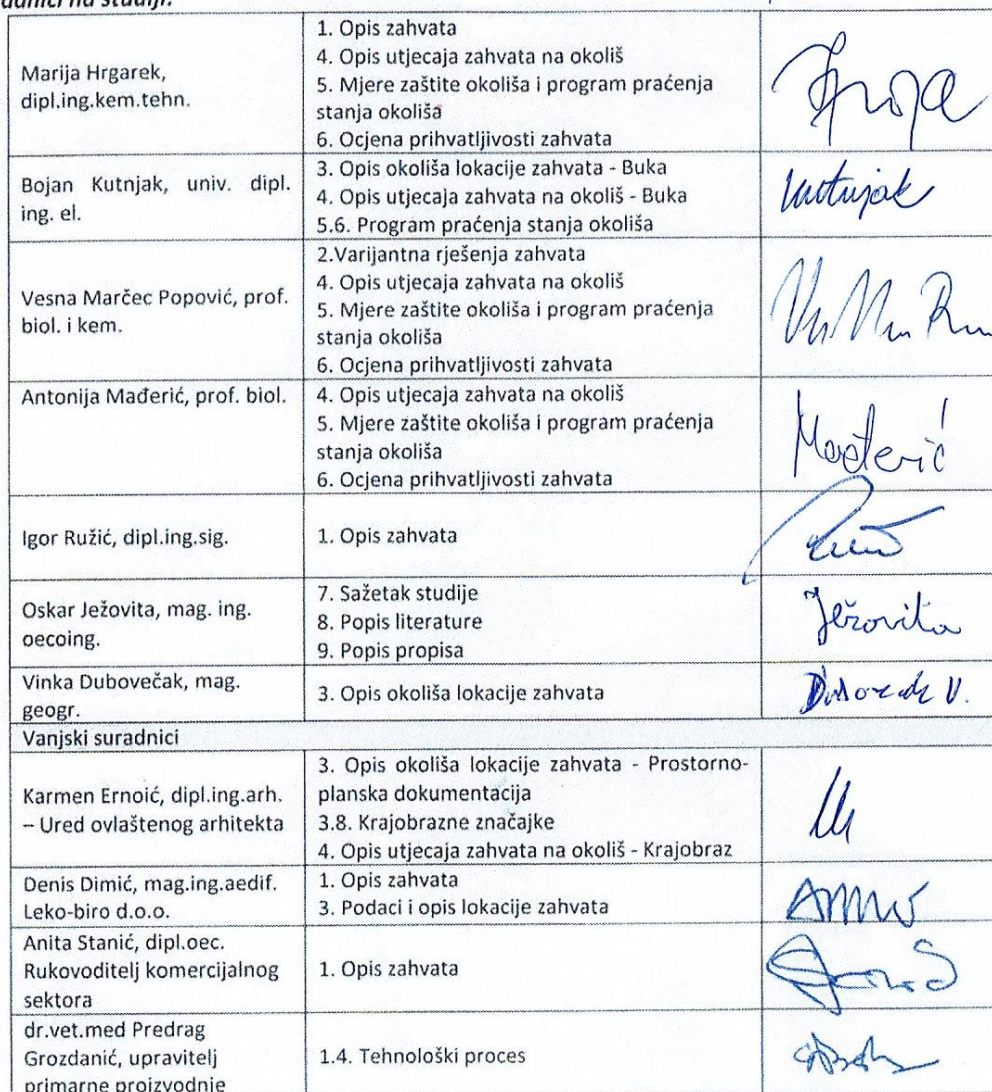 na studiji:
Marija Hrgarek,
dipl.ing.kem.tehn.
1. Opis zahvata
4. Opis utjecaja zahvata na okoliš
5. Mjere zaštite okoliša i program praćenja
stanja okoliša
6. Ocjena prihvatljivosti zahvata
Bojan Kutnjak, univ. dipl.
ing. el.
3. Opis okoliša lokacije zahvata - Buka
4. Opis utjecaja zahvata na okoliš - Buka
5.6. Program praćenja stanja okoliša
Kutnjak
Vesna Marčec Popović, prof.
biol. i kem.
2.Varijantna rješenja zahvata
4. Opis utjecaja zahvata na okoliš
5. Mjere zaštite okoliša i program praćenja
stanja okoliša
6. Ocjena prihvatljivosti zahvata
Antonija Mađerić, prof. biol.
4. Opis utjecaja zahvata na okoliš
5. Mjere zaštite okoliša i program praćenja
stanja okoliša
6. Ocjena prihvatljivosti zahvata
Mađerić
Igor Ružić, dipl.ing.sig.
1. Opis zahvata
Oskar Ježovita, mag. ing.
oecoing.
7. Sažetak studije
8. Popis literature
9. Popis propisa
Ježovita
Vinka Dubovečak, mag.
geogr.
3. Opis okoliša lokacije zahvata
Vanjski suradnici
Karmen Ernoić, dipl.ing.arh.
– Ured ovlaštenog arhitekta
3. Opis okoliša lokacije zahvata - Prostorno-
planska dokumentacija
3.8. Krajobrazne značajke
4. Opis utjecaja zahvata na okoliš - Krajobraz
Denis Dimić, mag.ing.aedif.
Leko-biro d.o.o.
1. Opis zahvata
3. Podaci i opis lokacije zahvata
Anita Stanić, dipl.oec.
Rukovoditelj komercijalnog
sektora
1. Opis zahvata
dr.vet.med Predrag
Grozdanić, upravitelj
primarne proizvodnje
1.4. Tehnološki proces